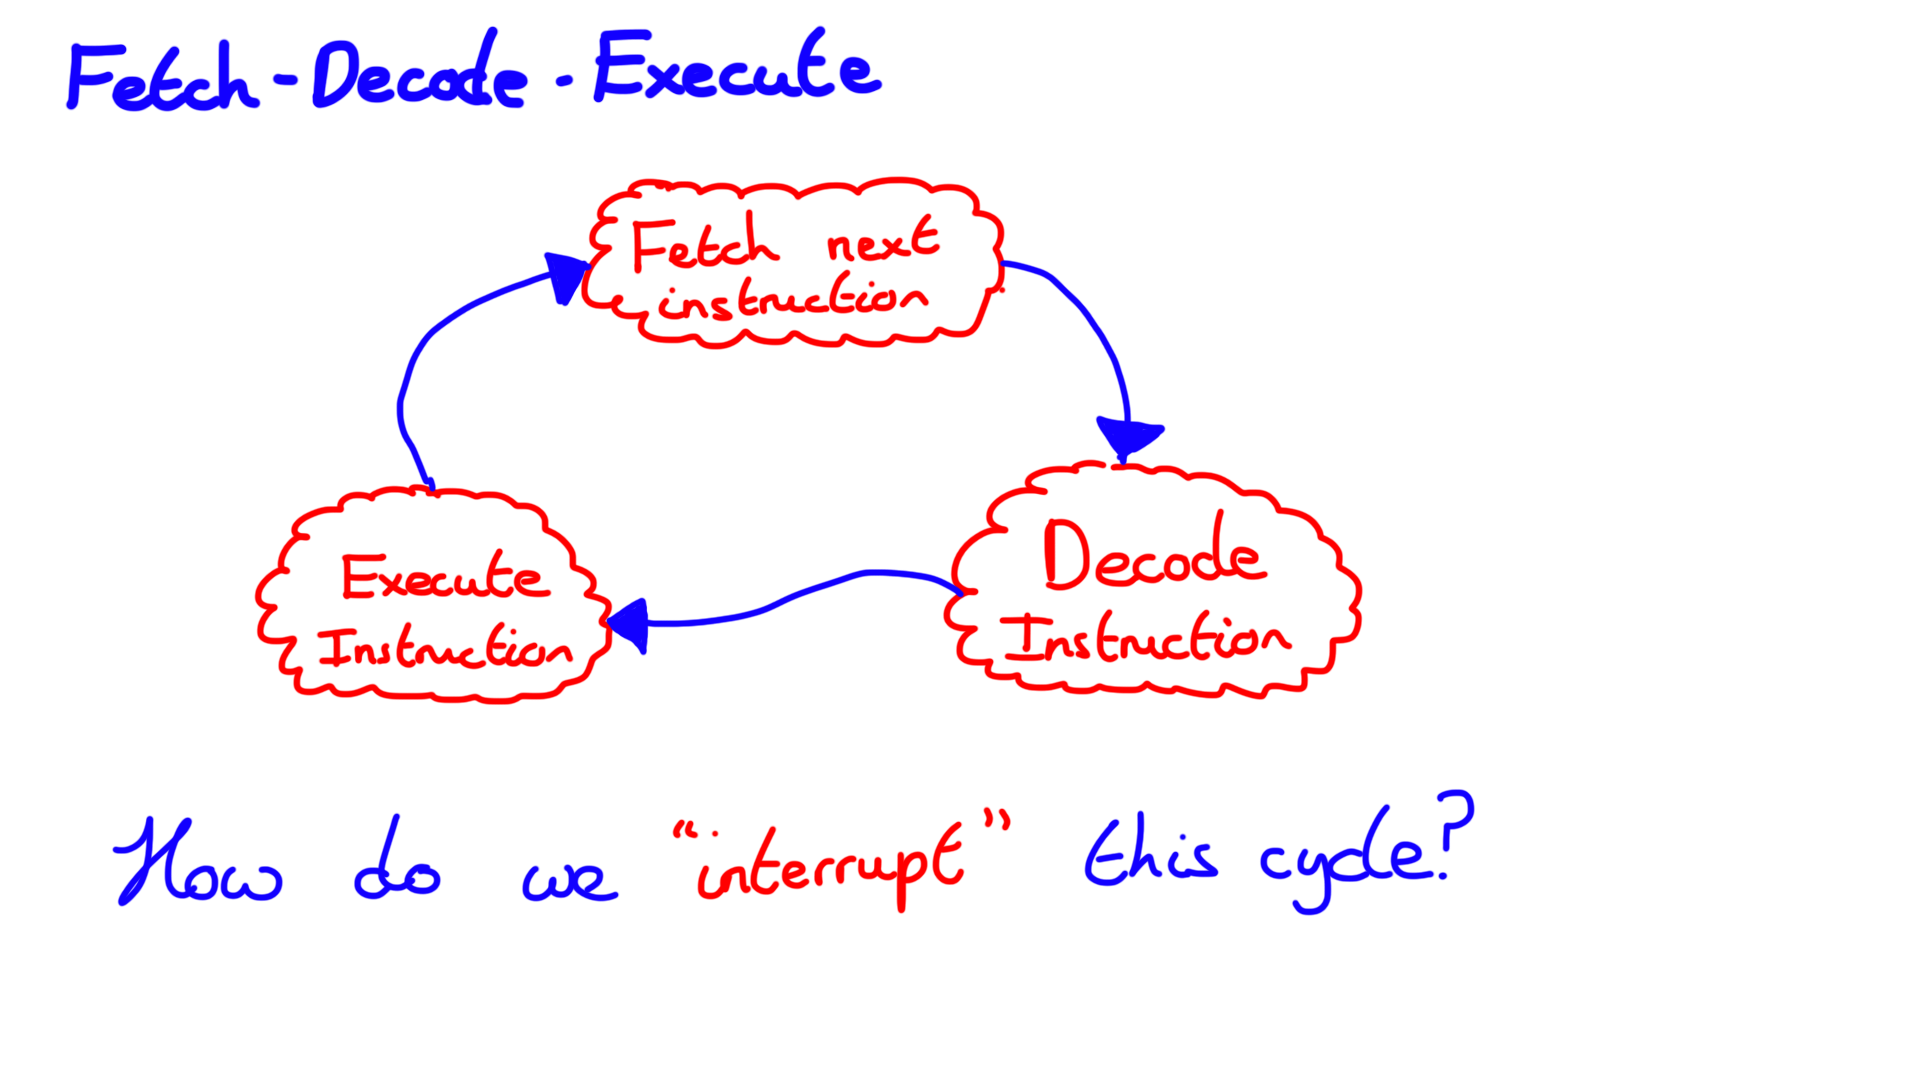 Fetch-Decode-Execute
Fetch next
instruction
Execute
Instruction
Decode
Instruction
How do we "interrupt" this cycle?